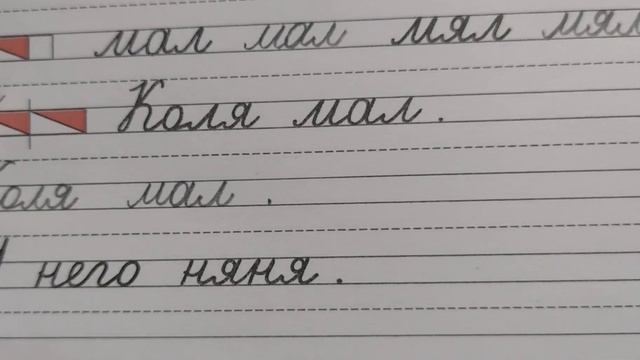 мал мал мял мял
Коля мал.
Коля мал.
У него няня.